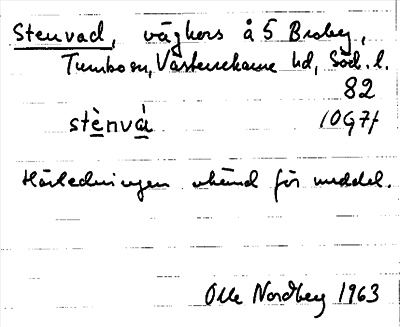 Stenvad, vägkors å 5 Broby,
Tumbo sn, Västerrekarne hd, Söd. l.
82
stènvà 10G7f
Härledningen okänd för meddel.
Olle Nordberg 1963